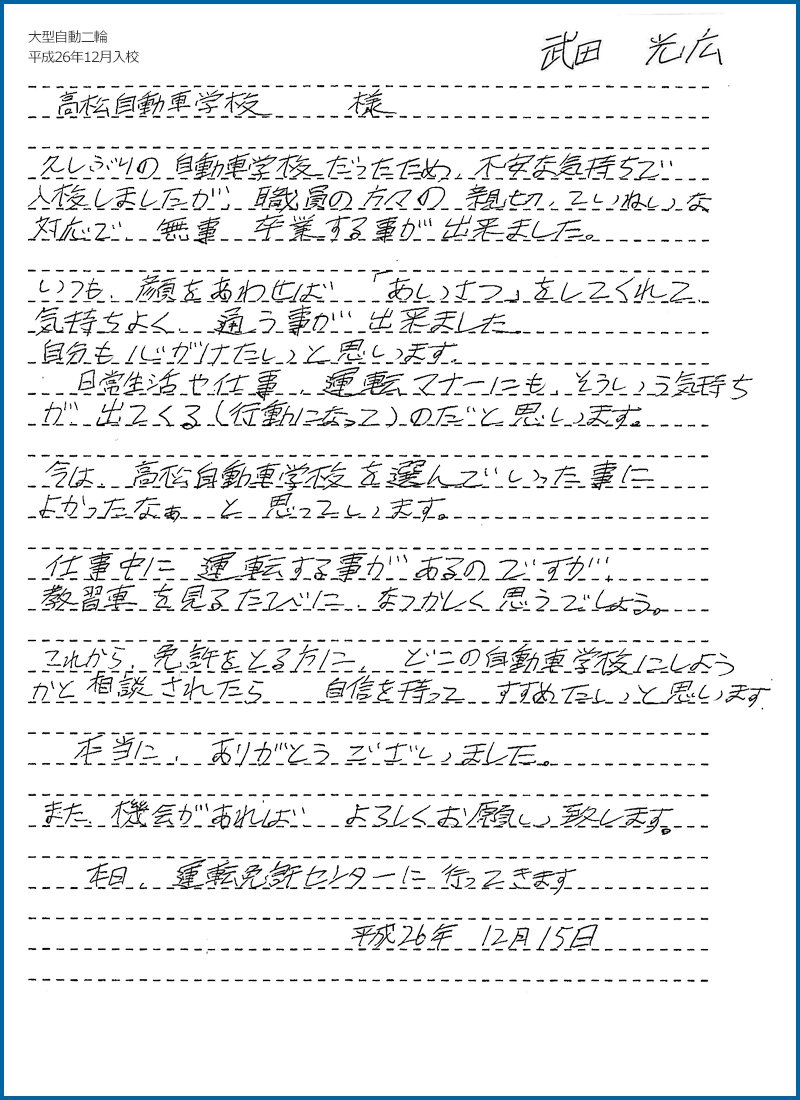 大型自動二輪
平成26年12月入校
武田 光広
高松自動車学校 様
久しぶりの 自動車学校だったため、不安な気持ちで
入校しましたが、職員の方々の 親切、ていねいな
対応で 無事 卒業する事が 出来ました。
いつも、顔をあわせば 「あいさつ」をしてくれて、
気持ちよく、通う事が 出来ました
自分も 心がけたいと思います。
日常生活や仕事、運転マナーにも、そういう気持ち
が 出てくる(行動になって)のだと思います。
今は、高松自動車学校を選んでいった事に
よかったなぁ と 思っています。
仕事中に 運転する事が あるのですが、
教習車を見るたびに、なつかしく思うでしょう。
これから、免許をとる方に、どこの自動車学校にしよう
かと相談されたら 自信を持って すすめたいと思います
本当に、ありがとうございました。
また、機会があれば よろしくお願い致します。
本日、運転免許センターに 行ってきます
平成26年 12月15日